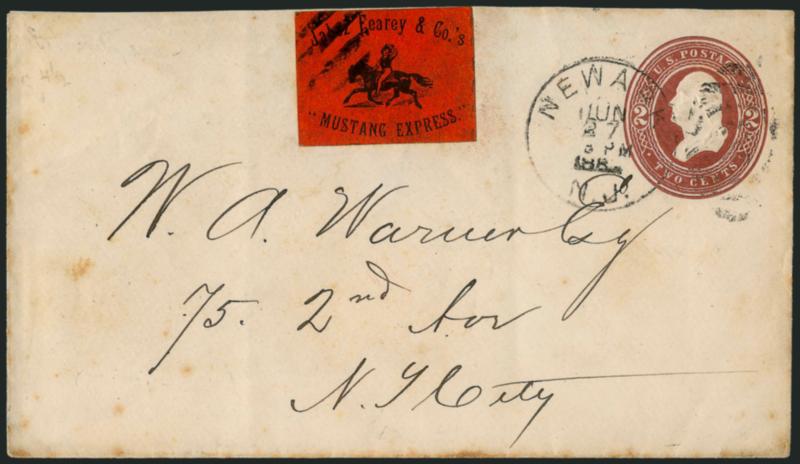 Jabez Fearey & Co.'s
"MUSTANG EXPRESS."
NEWARK
JUN
27
PM
N.J.
U.S. POSTAGE
2 2
TWO CENTS
W. A. Warner Esq
75. 2nd Av
N. Y City